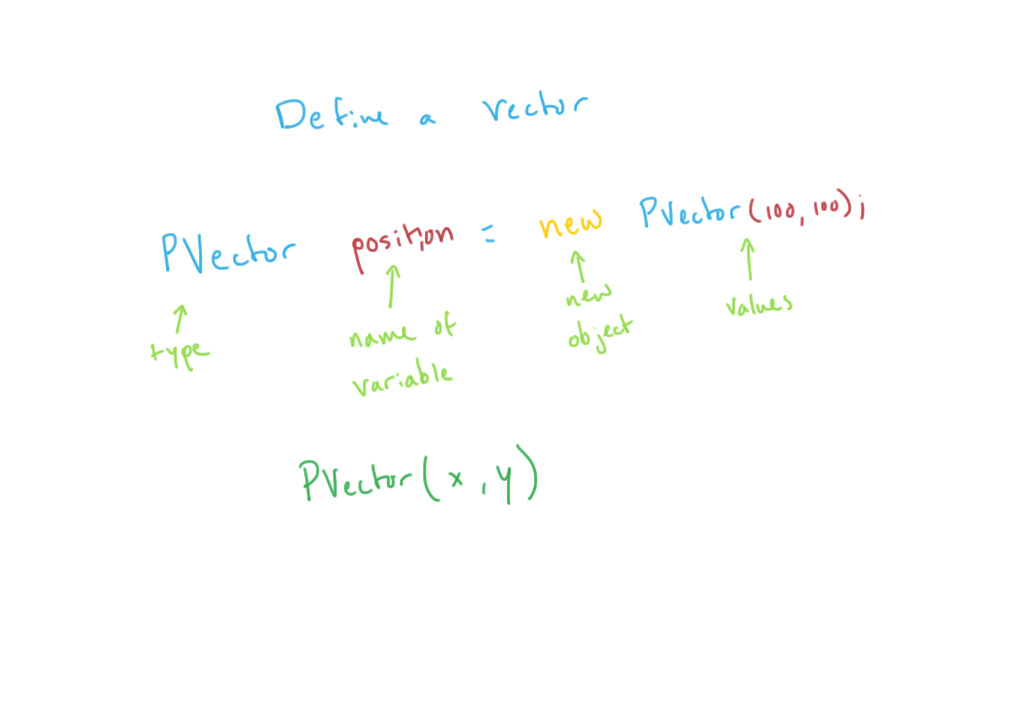 Define a vector
PVector position = new PVector(100, 100);
type
name of
variable
new
object
values
PVector(x, y)